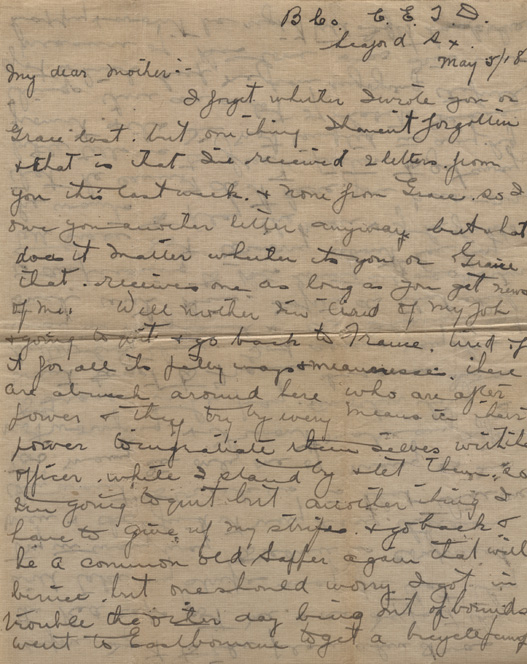 B Co. C. E. T. D.
Seaford Sx.
May 5/18
My dear Mother:-
I forget whether I wrote you or
Grace last. but one thing I havent forgotten
& that is that Ive received 2 letters from
you this last week. & none from Grace. so I
owe you another letter anyway. but what
does it matter whether its you or Grace
that receives one as long as you get news
of me. Well Mother Im tired of my job
& going to quit & go back to France. tired of
it for all its petty ways & meanness. there
are a bunch around here who are after
power & they try by every means in their
power to ingratiate them selves with the
officer. while I stand by & let them, so
Im going to quit but another thing I
have to give up my stripes. & go back &
be a common old Sapper again that will
be nice. but one should worry I got in
trouble the other day being out of bounds
went to Eastbourne to get a bicycle pump